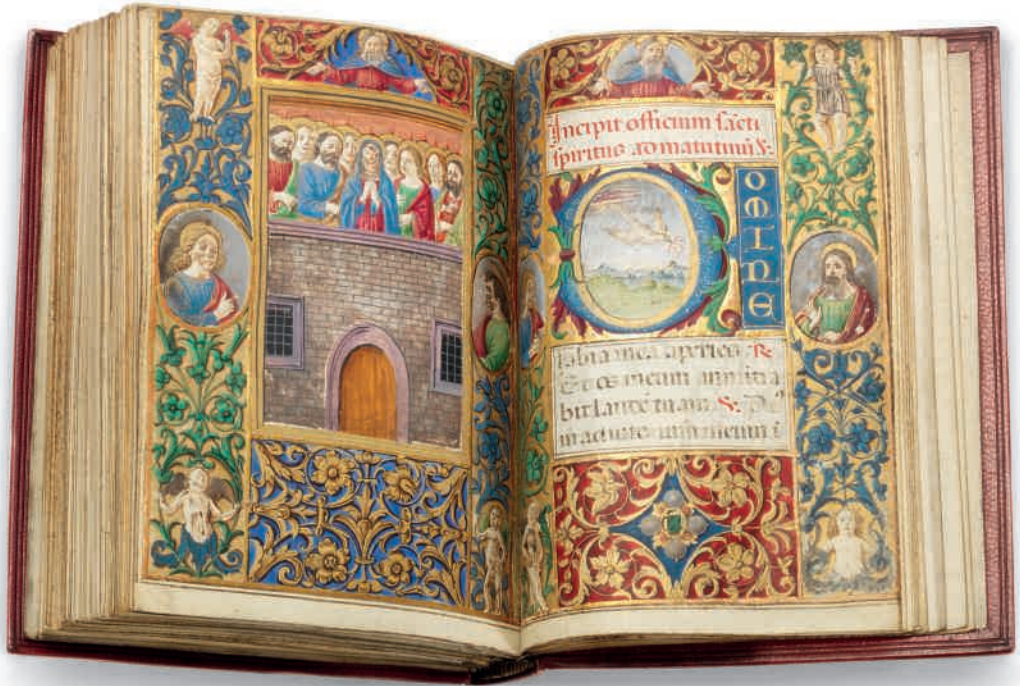 Incipit officium sācti
spiritus ad matutinū ℣:
D
OMINE
labia mea aperies ℟
Et os meum annūtia
bit laudē tuam ℣: De
in adiuto